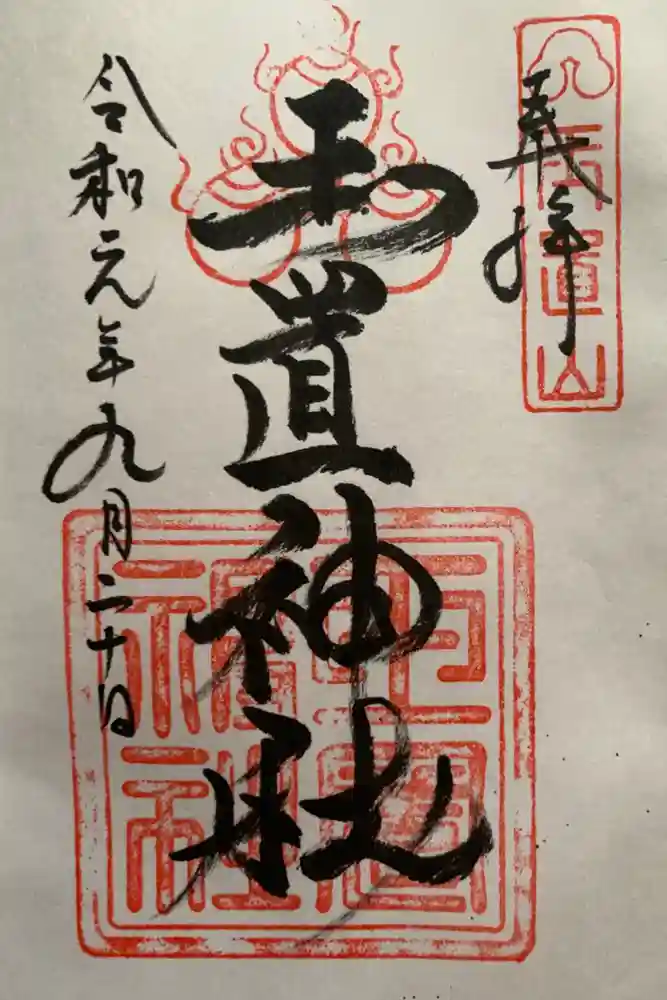 奉拝
玉置山
玉置神社
玉置
神社
令和元年九月二十日